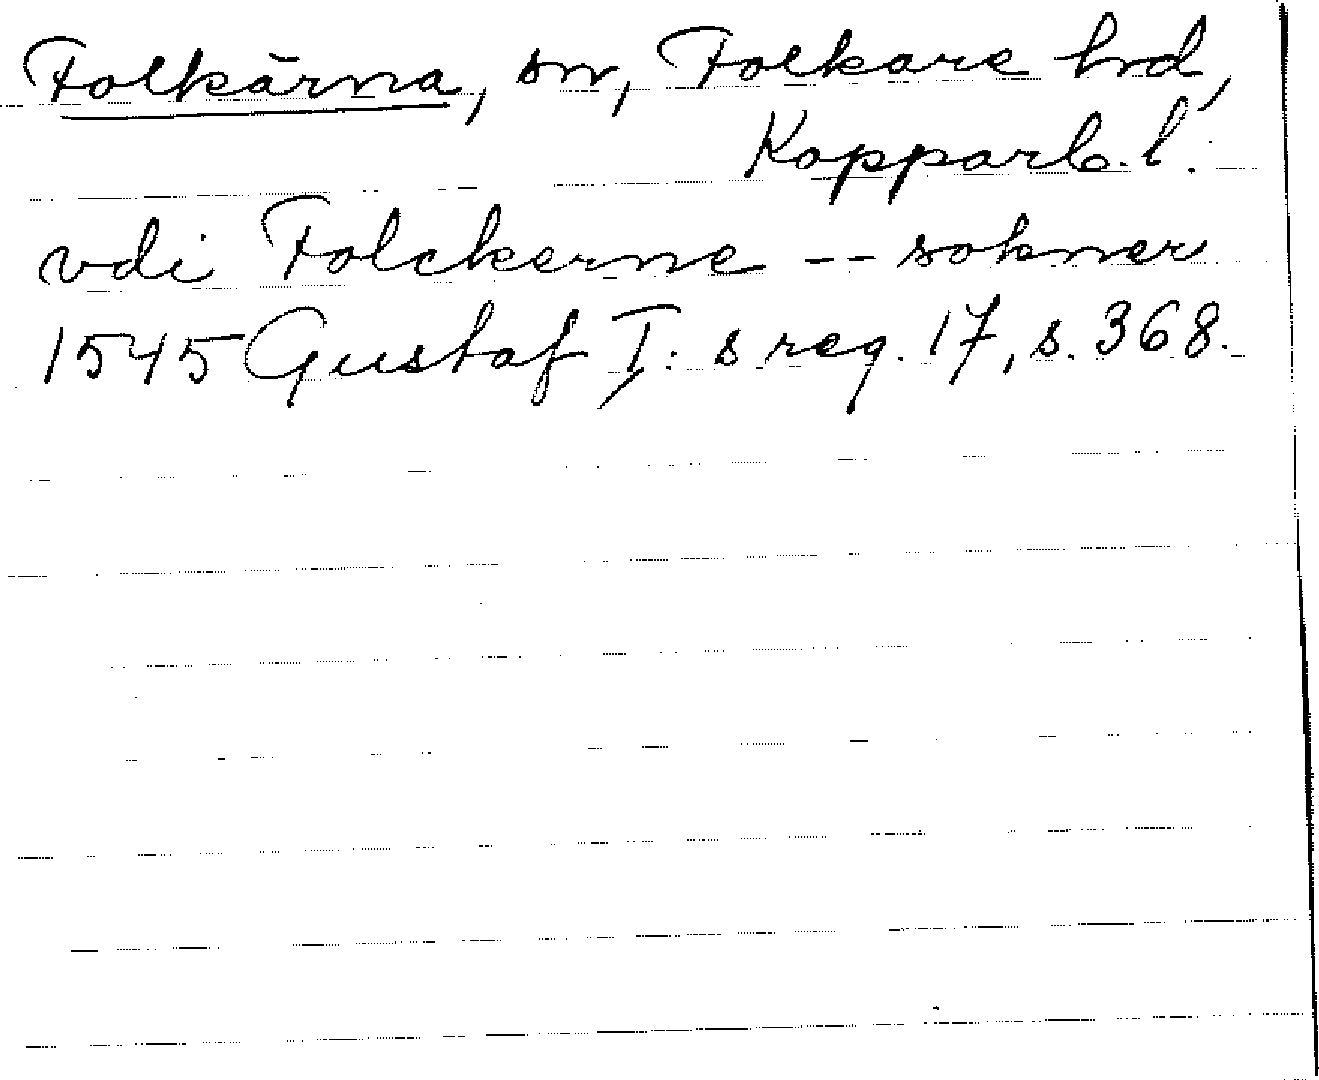 Folkärna, sn, Folkare hrd,
Kopparb. l.
vdi Folckerne -- sokner
1545 Gustaf I: s reg. 17, s. 368.